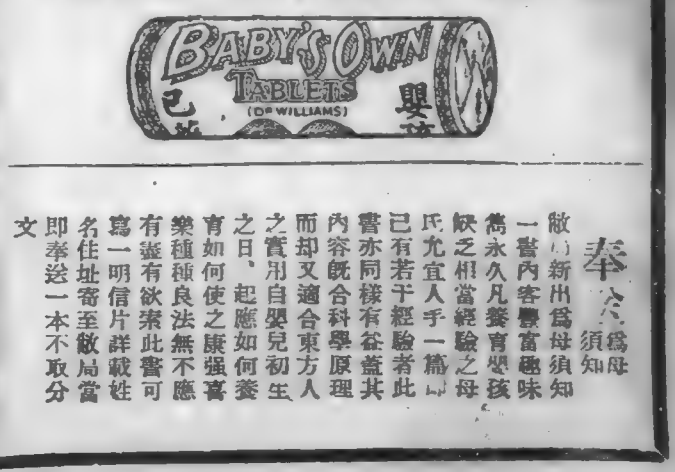 BABY'S OWN
TABLETS
(DR WILLIAMS)
嬰孩
己
奉
爲母
須知
敝局新出爲母須知
一書內容豐富趣味
雋永久凡養育嬰孩
缺乏相當經驗之母
氏尤宜人手一篇即
已有若干經驗者此
書亦同樣有益蓋其
內容既合科學原理
而却又適合東方人
之實用自嬰兒初生
之日、起應如何養
育如何使之康强喜
樂種種良法無不應
有盡有欲索此書可
寫一明信片詳載姓
名住址寄至敝局當
即奉送一本不取分
文